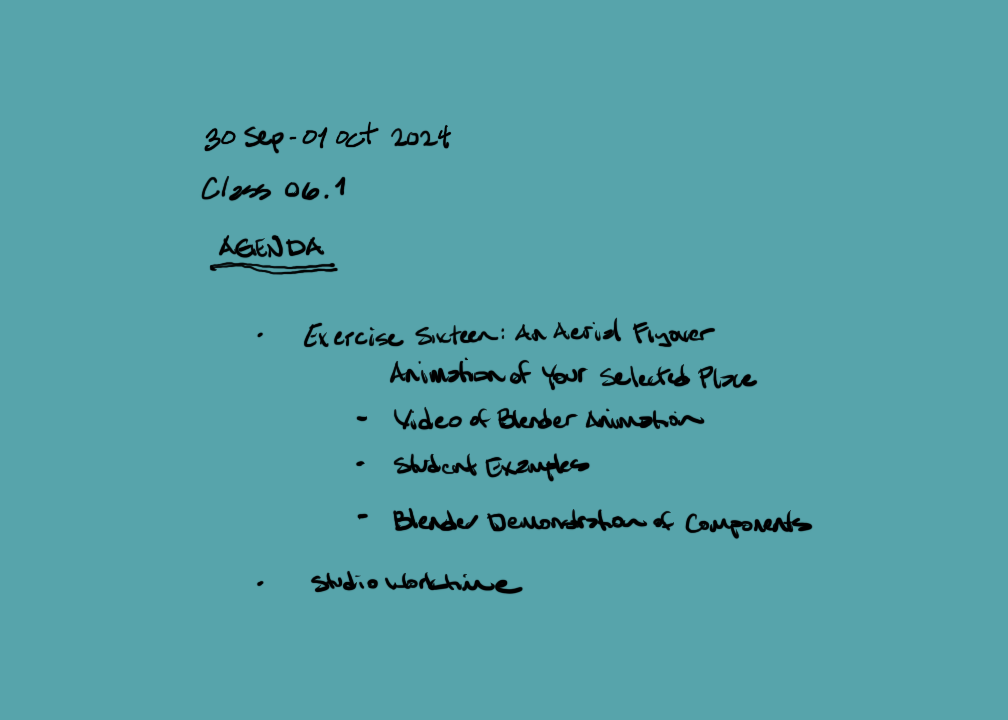 30 Sep - 01 Oct 2024
Class 06.1
AGENDA
• Exercise Sixteen: An Aerial Flyover
Animation of Your Selected Place
- Video of Blender Animation
- Student Examples
- Blender Demonstration of Components
• Studio Worktime